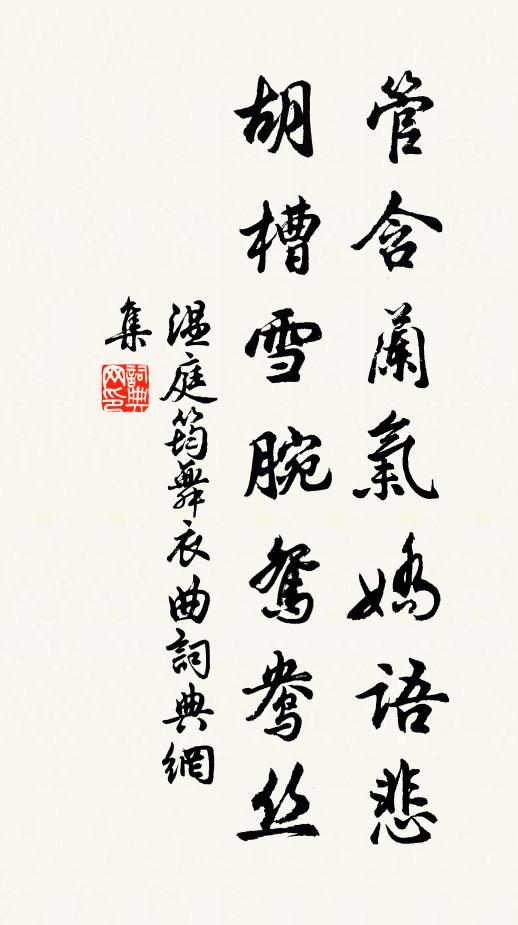 管含蘭氣嬌語悲
胡槽雪腕鴛鴦丝
温庭筠舞衣曲詞典網
集
詞典网印